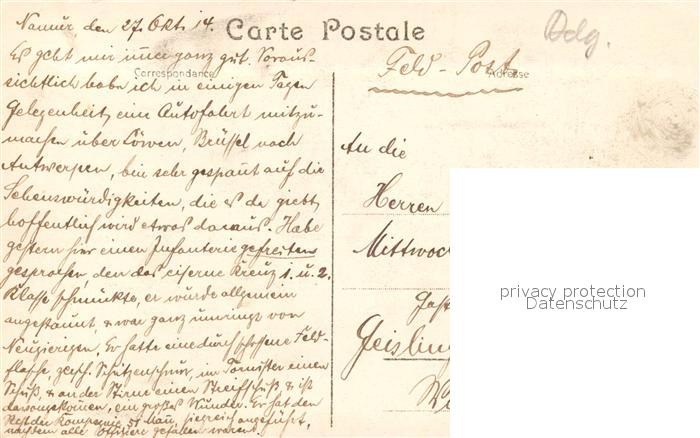 Namur, den 27. Okt. 14.
Carte Postale
Odlg.
Es geht mir immer ganz gut. Voraus-
Correspondance
sichtlich habe ich in einigen Tagen
Gelegenheit, eine Autofahrt mitzu-
machen über Löwen, Brüssel nach
Antwerpen, bin sehr gespannt auf die
Sehenswürdigkeiten, die es da giebt,
hoffentlich wird etwas daraus. Habe
gestern hier einen Infanteriegefreiten
gesprochen, den das eiserne Kreuz 1. u. 2.
Klasse schmückte, er wurde allgemein
angestaunt, & war ganz umringt von
Neugierigen. Er hatte eine durchschossene Feld-
flasche, Schützenschnur, im Tornister einen
Schuß, & an der Stirne einen Streifschuß, & ist
davongekommen, ein großes Wunder. Er hat den
Rest der Kompagnie, 51 Mann, siegreich angeführt,
nachdem alle Offiziere gefallen waren.
Feld-Post
Adresse
An die
Herren
Mittwoc
Gast
Geisling
Wü
privacy protection
Datenschutz